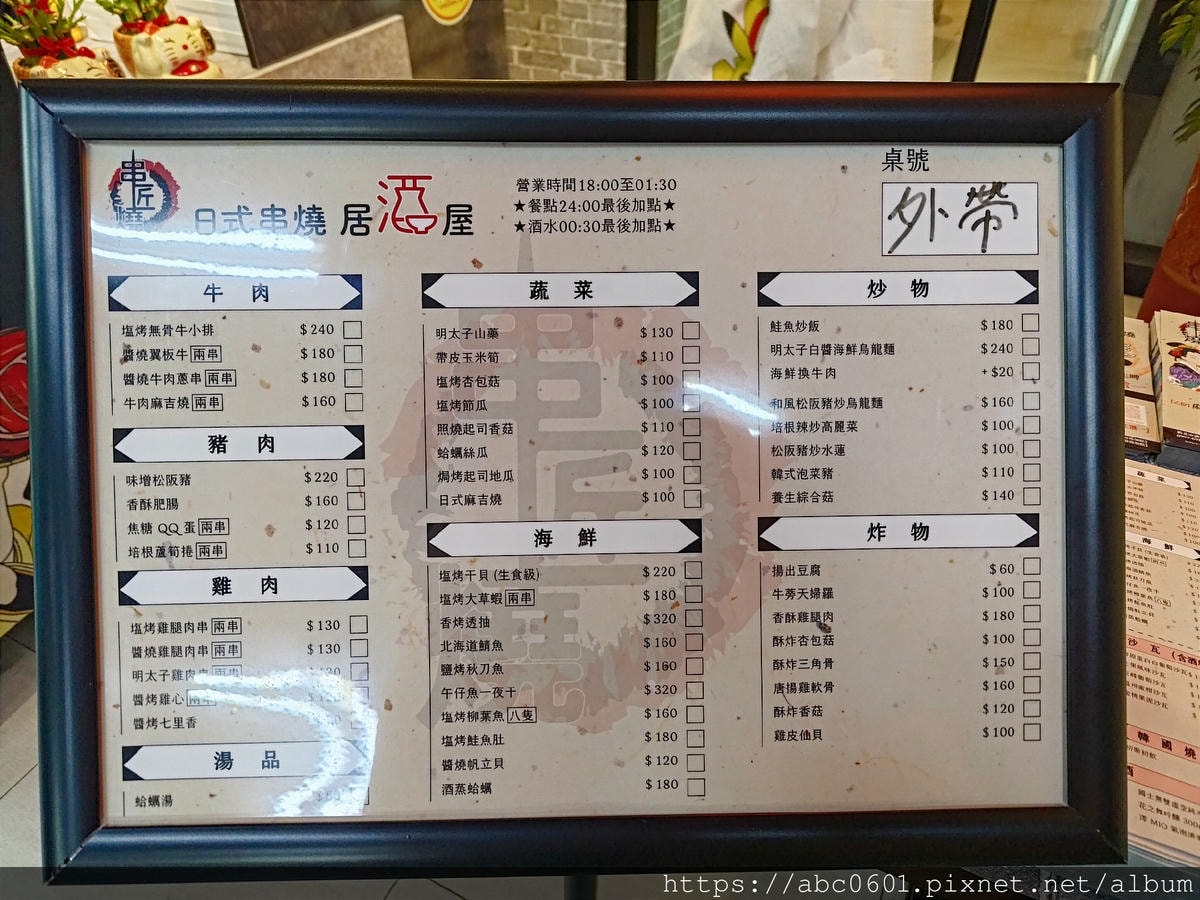 串匠燒
日式串燒 居酒屋
營業時間18:00至01:30
★餐點24:00最後加點★
★酒水00:30最後加點★
桌號
外帶
牛肉
塩烤無骨牛小排 $240
醬燒翼板牛 兩串 $180
醬燒牛肉蔥串 兩串 $180
牛肉麻吉燒 兩串 $160
豬肉
味增松阪豬 $220
香酥肥腸 $160
焦糖QQ蛋 兩串 $120
培根蘆筍捲 兩串 $110
雞肉
塩烤雞腿肉串 兩串 $130
醬燒雞腿肉串 兩串 $130
明太子雞肉串 兩串 $130
醬烤雞心
醬烤七里香
湯品
蛤蠣湯
蔬菜
明太子山藥 $130
帶皮玉米筍 $110
塩烤杏包菇 $100
塩烤節瓜 $100
照燒起司香菇 $110
蛤蠣絲瓜 $120
焗烤起司地瓜 $100
日式麻吉燒 $100
海鮮
塩烤干貝(生食級) $220
塩烤大草蝦 兩串 $180
香烤透抽 $320
北海道鯖魚 $160
鹽烤秋刀魚 $160
午仔魚一夜干 $320
塩烤柳葉魚 八隻 $160
塩烤鮭魚肚 $180
醬燒帆立貝 $120
酒蒸蛤蠣 $180
炒物
鮭魚炒飯 $180
明太子白醬海鮮烏龍麵 $240
海鮮換牛肉 +$20
和風松阪豬炒烏龍麵 $160
培根辣炒高麗菜 $100
松阪豬炒水蓮 $100
韓式泡菜豬 $110
養生綜合菇 $140
炸物
揚出豆腐 $60
牛蒡天婦羅 $100
香酥雞腿肉 $180
酥炸杏包菇 $100
酥炸三角骨 $150
唐揚雞軟骨 $160
酥炸香菇 $120
雞皮仙貝 $100
蔬菜
海鮮
沙瓦
韓國燒
https://abc0601.pixnet.net/album